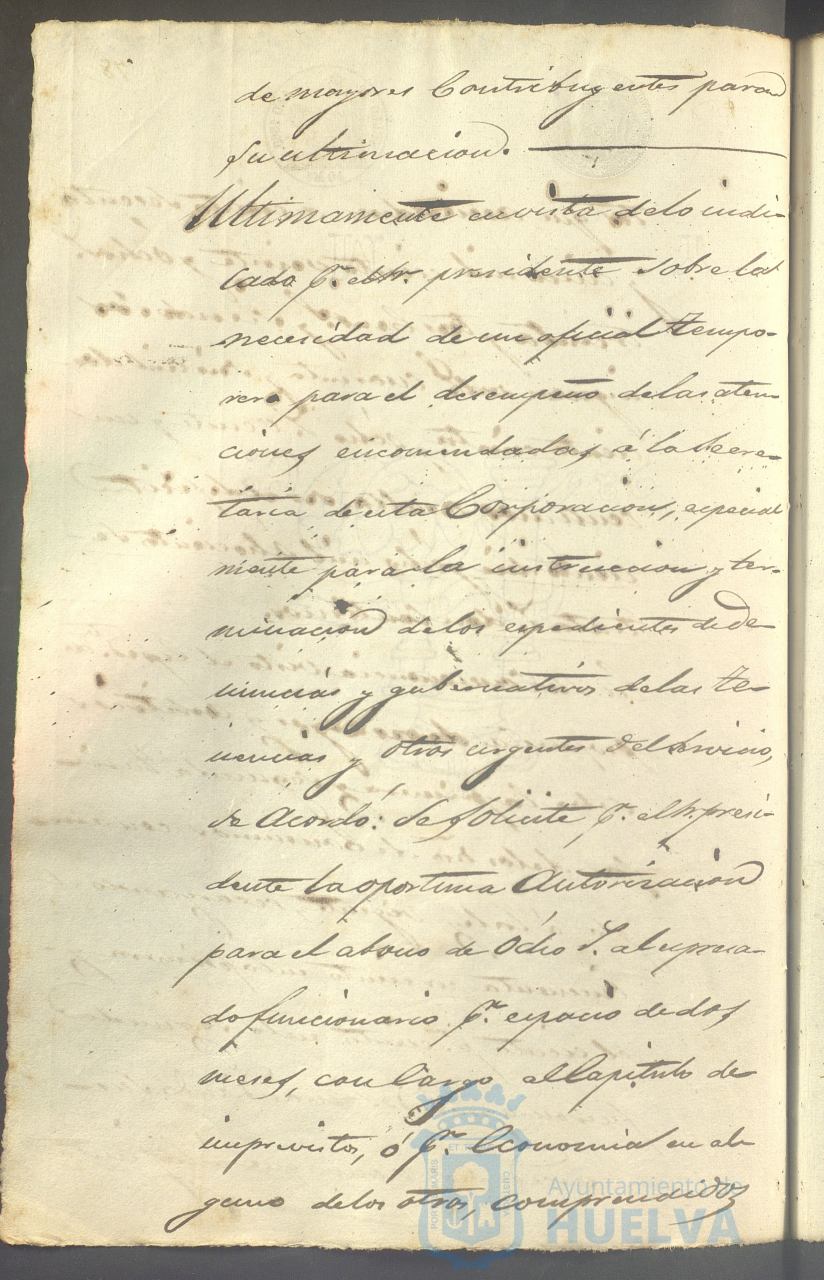 de mayores Contribuyentes para
su ultimacion.
Ultimamente en vista de lo indi-
cado p.r el Sr. presidente sobre la
necesidad de un oficial tempo-
rero para el desempeño de las aten-
ciones encomendadas á la Secre-
taria de esta Corporacion, especial
mente para la instruccion y ter-
minacion de los espedientes de de-
nuncias y gubernativos de las te-
nencias y otros urgentes del servicio,
se Acordó: Se solicite p.r el Sr. presi-
dente la oportuna Autorizacion
para el abono de Ocho r.s al espresa-
do funcionario p.r espacio de dos
meses, con Cargo al Capitulo de
imprevistos, ó p.r Economia en al-
guno de los otros, comprendidos
Ayuntamiento de
HUELVA